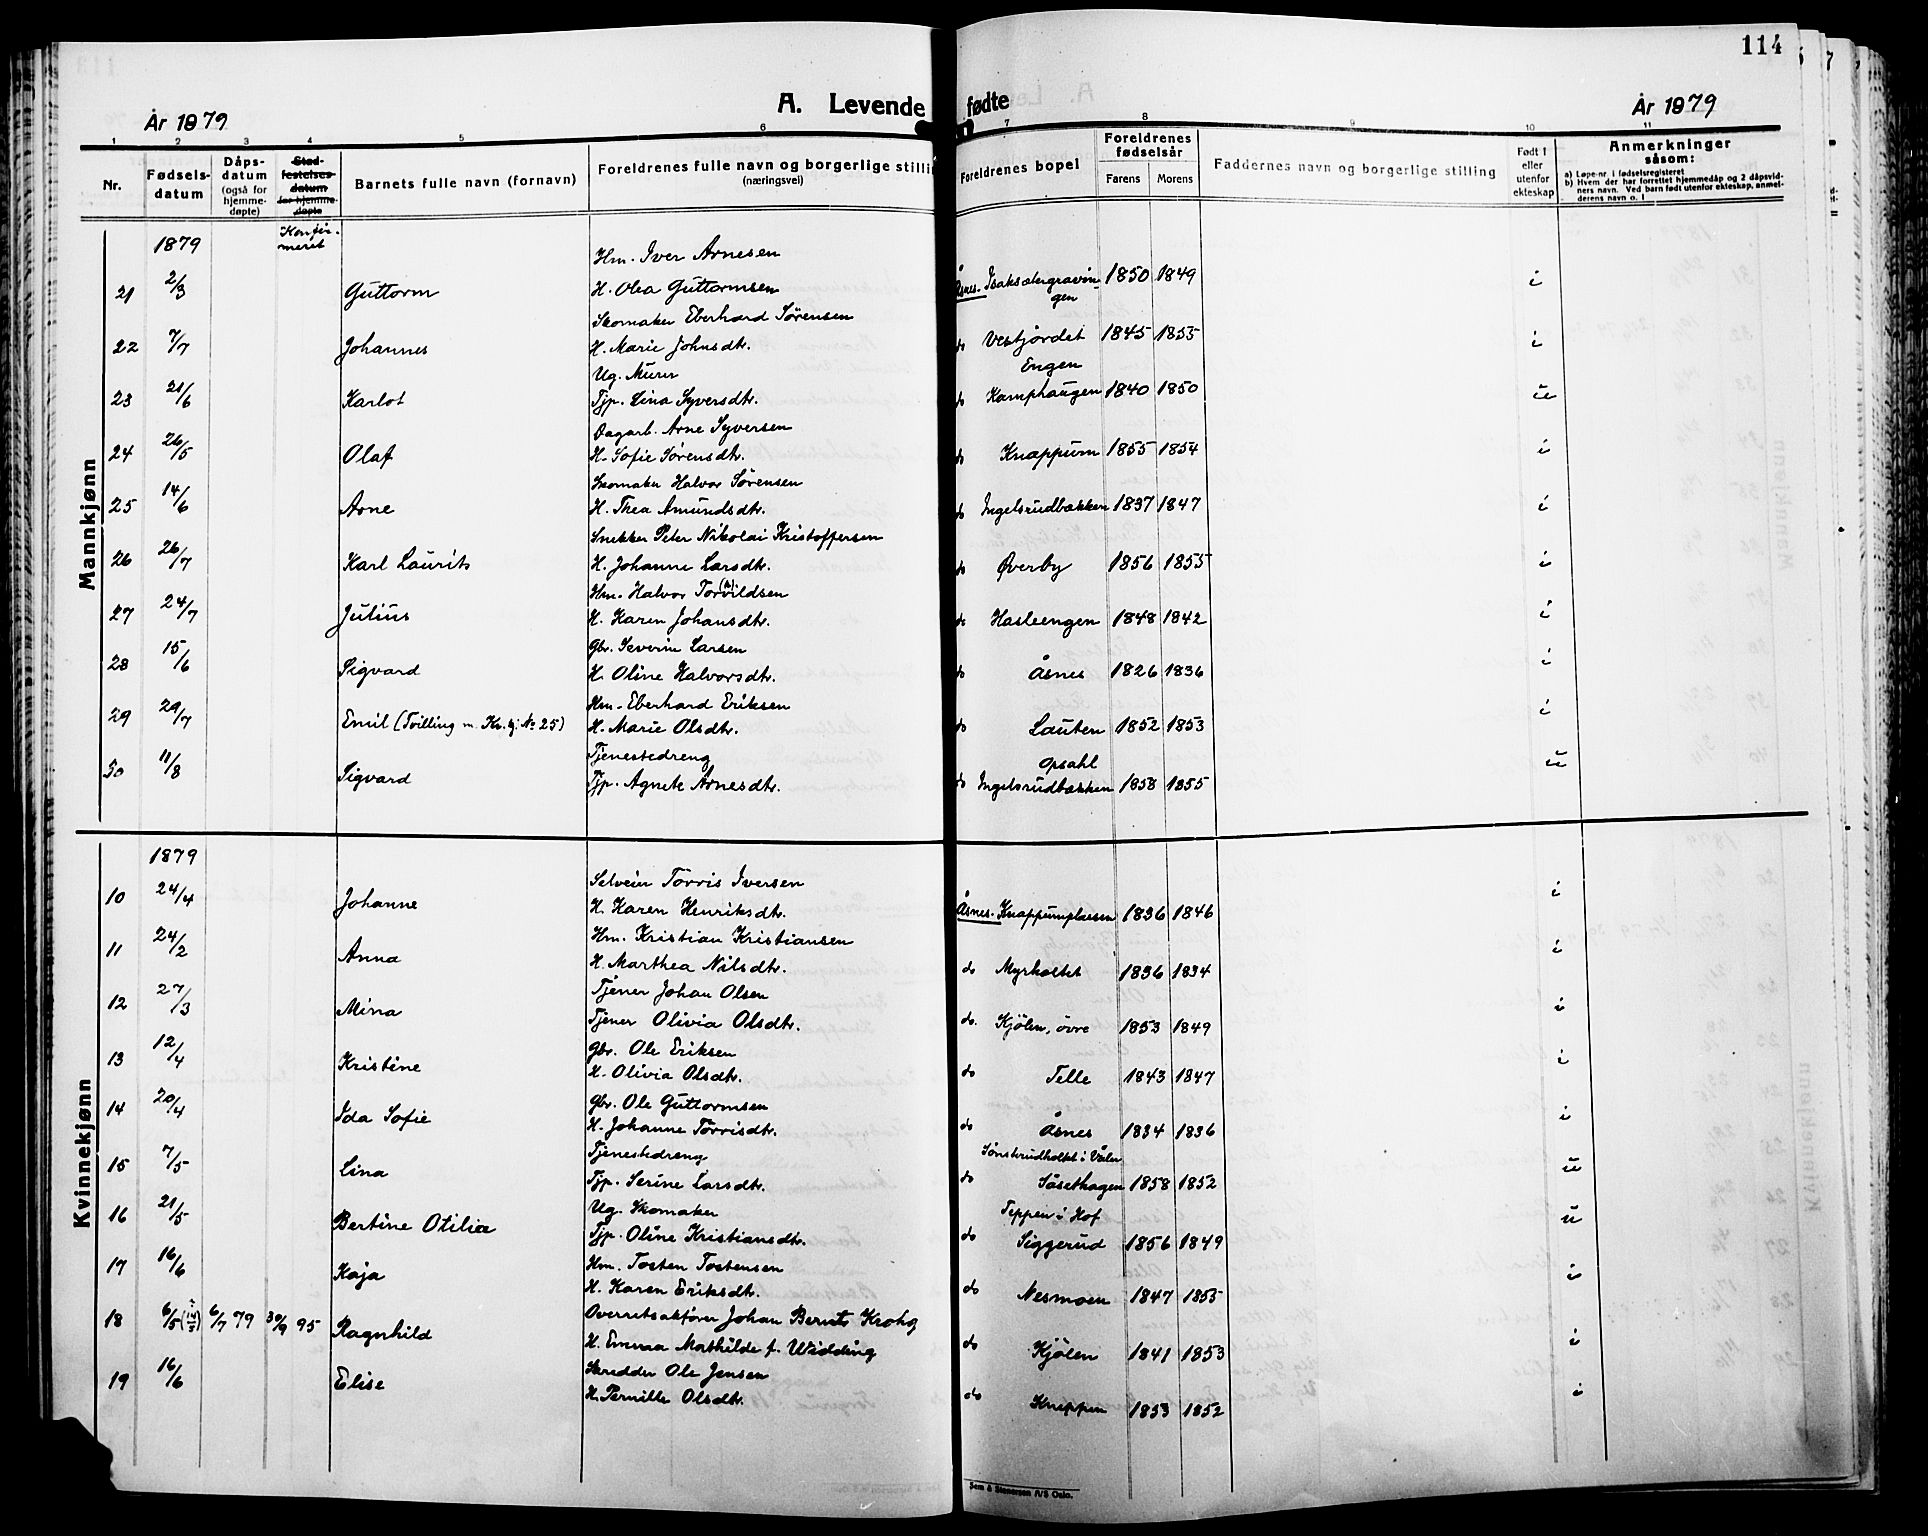 114
A. Levende fødte
År 1879
År 1879
1 2 3 4 5 6 7 8 9 10 11
Nr.
Fødselsdatum
Dåpsdatum (også for hjemmedøpte)
Stadfestelsesdatum for hjemmedøpte
Barnets fulle navn (fornavn)
Foreldrenes fulle navn og borgerlige stilling (næringsvei)
Foreldrenes bopel
Foreldrenes fødselsår
Farens Morens
Faddernes navn og borgerlige stilling
Født i eller utenfor ekteskap
Anmerkninger såsom:
a) Løpe-nr. i fødselsregisteret
b) Hvem der har forrettet hjemmedåp og 2 dåpsvidners navn. Ved barn født utenfor ekteskap, anmelderens navn o. l
Mannkjønn
1879 Konfirmeret
Hm. Iver Arnesen
21 2/3 Guttorm H. Olea Guttormsen Åsnes. Isaksætergravingen 1850 1849 i
Skomaker Eberhard Sørensen
22 7/7 Johannes H. Marie Johnsdtr. do Vestjordet 1845 1855 i
Ug. Murer Engen
23 21/6 Karlot Tjp. Lina Syversdtr. do Kamphaugen 1840 1850 u
Dagarb. Arne Syversen
24 26/5 Olaf H. Sofie Sørensdtr. do Knappum 1855 1854 i
Skomaker Halvor Sørensen
25 14/6 Arne H. Thea Amundsdtr. do Ingelsrudbækken 1837 1847 i
Snekker Peter Nikolai Kristoffersen
26 26/7 Karl Laurits H. Johanne Larsdtr. do Øverby 1856 1855 i
Hm. Halvor Torvildsen
27 24/7 Julius H. Karen Johansdtr. do Hasleengen 1848 1842 i
Gbr. Severin Larsen
28 15/6 Sigvard H. Oline Halvorsdtr. do Åsnes 1826 1836 i
Hm. Eberhard Eriksen
29 29/7 Emil (Tvilling m. Kv.kj. No 25) H. Marie Olsdtr. do Lauten 1852 1853 i
Tjenestedreng Opsahl
30 11/8 Sigvard Tjp. Agnete Arnesdtr. do Ingelsrudbækken 1858 1855 u
Kvinnekjønn
1879
Selveier Torris Iversen
10 24/4 Johanne H. Karen Henriksdtr. Åsnes. Knappumplassen 1836 1846 i
Hm. Kristian Kristiansen
11 24/2 Anna H. Marthea Nilsdtr. do Myrholtet 1836 1834 i
Tjener Johan Olsen
12 27/3 Mina Tjener Olivia Olsdtr. do. Kjølen, övre 1853 1849 i
Gbr. Ole Eriksen
13 12/4 Kristine H. Olivia Olsdtr. do Telle 1843 1847 i
Gbr. Ole Guttormsen
14 20/4 Ida Sofie H. Johanne Torrisdtr. do Åsnes 1834 1836 i
Tjenestedreng Sönsterudholtet i Våler
15 7/5 Lina Tjp. Serine Larsdtr. do Såsethagen 1858 1852 u
Ug. Skomaker Teppen i Hof
16 21/5 Bertine Otilia Tjp. Oline Kristiansdtr. do Siggerud 1856 1849 u
Hm. Tosten Tostensen
17 16/6 Kaja H. Karen Eriksdtr. do Nesmoen 1847 1855 i
Overretsakfører Johan Bernts Krohg
18 6/5 6/7 79 30/9 95 Ragnhild H. Emma Mathilde f. Widding do Kjölen 1841 1853 i
Skredder Ole Jensen
19 16/6 Elise H. Pernille Olsdtr. do Kneppen 1853 1852 i
Sem & Stenersen A/S Oslo.